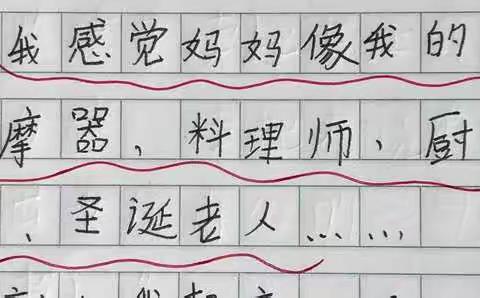 我感觉妈妈像我的
摩器、料理师、厨
、圣诞老人……